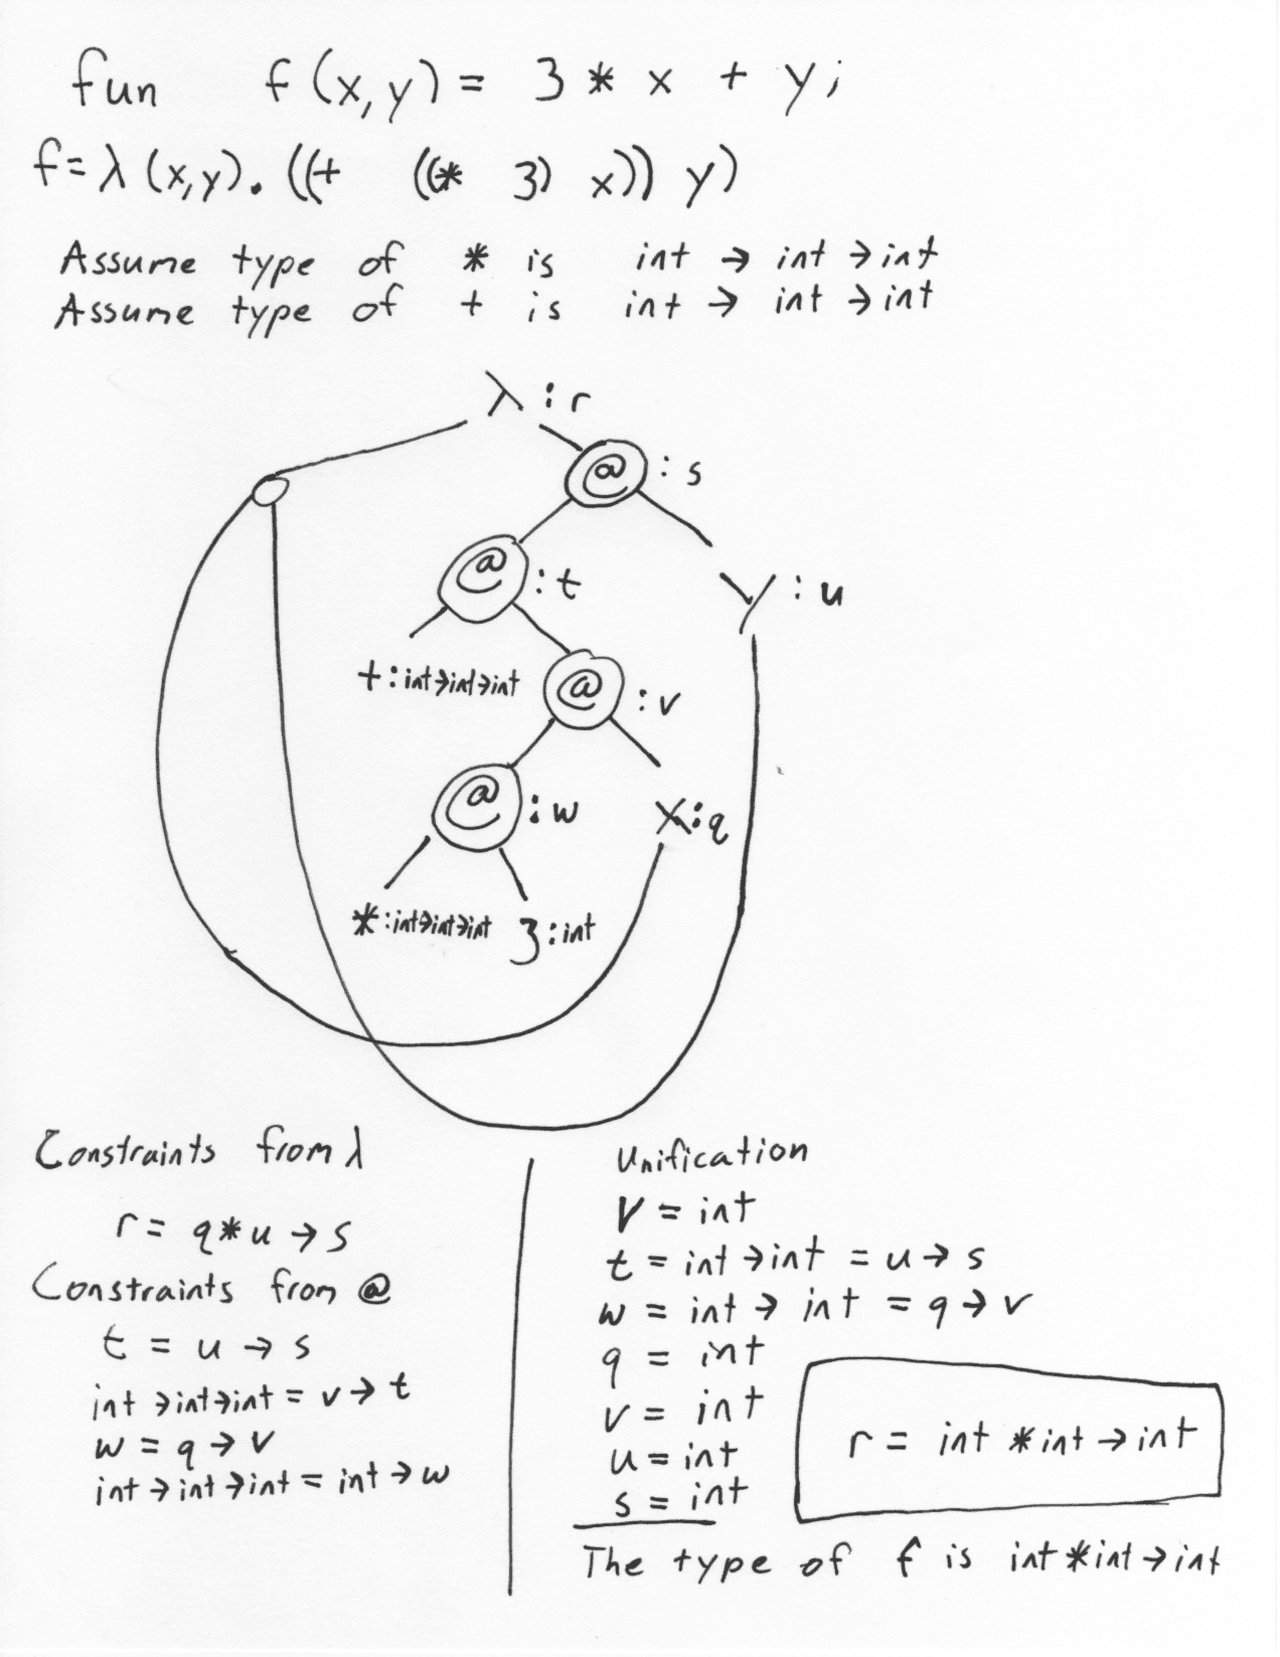 fun f(x,y) = 3 * x + y;
f = λ (x,y). ((+ ((* 3) x)) y)
Assume type of * is int → int → int
Assume type of + is int → int → int
λ : r
@ : s
@ : t
y : u
+ : int→int→int
@ : v
@ : w
x : q
* : int→int→int
3 : int
Constraints from λ
r = q * u → s
Constraints from @
t = u → s
int → int → int = v → t
w = q → v
int → int → int = int → w
Unification
v = int
t = int → int = u → s
w = int → int = q → v
q = int
v = int
u = int
s = int
r = int * int → int
The type of f is int * int → int